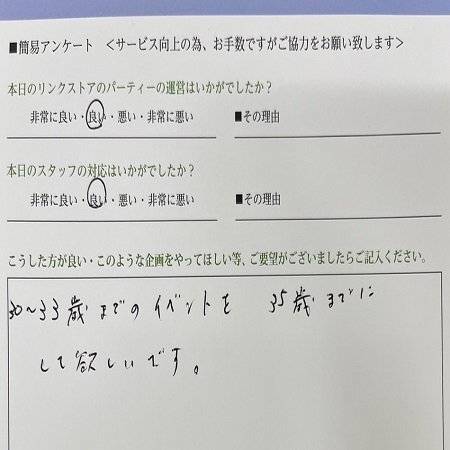 ■簡易アンケート ＜サービス向上の為、お手数ですがご協力をお願い致します＞
本日のリンクストアのパーティーの運営はいかがでしたか？
非常に良い・良い・悪い・非常に悪い ■その理由
本日のスタッフの対応はいかがでしたか？
非常に良い・良い・悪い・非常に悪い ■その理由
こうした方が良い・このような企画をやってほしい等、ご要望がございましたらご記入ください。
30～33歳までのイベントを 35歳までに
して欲しいです。